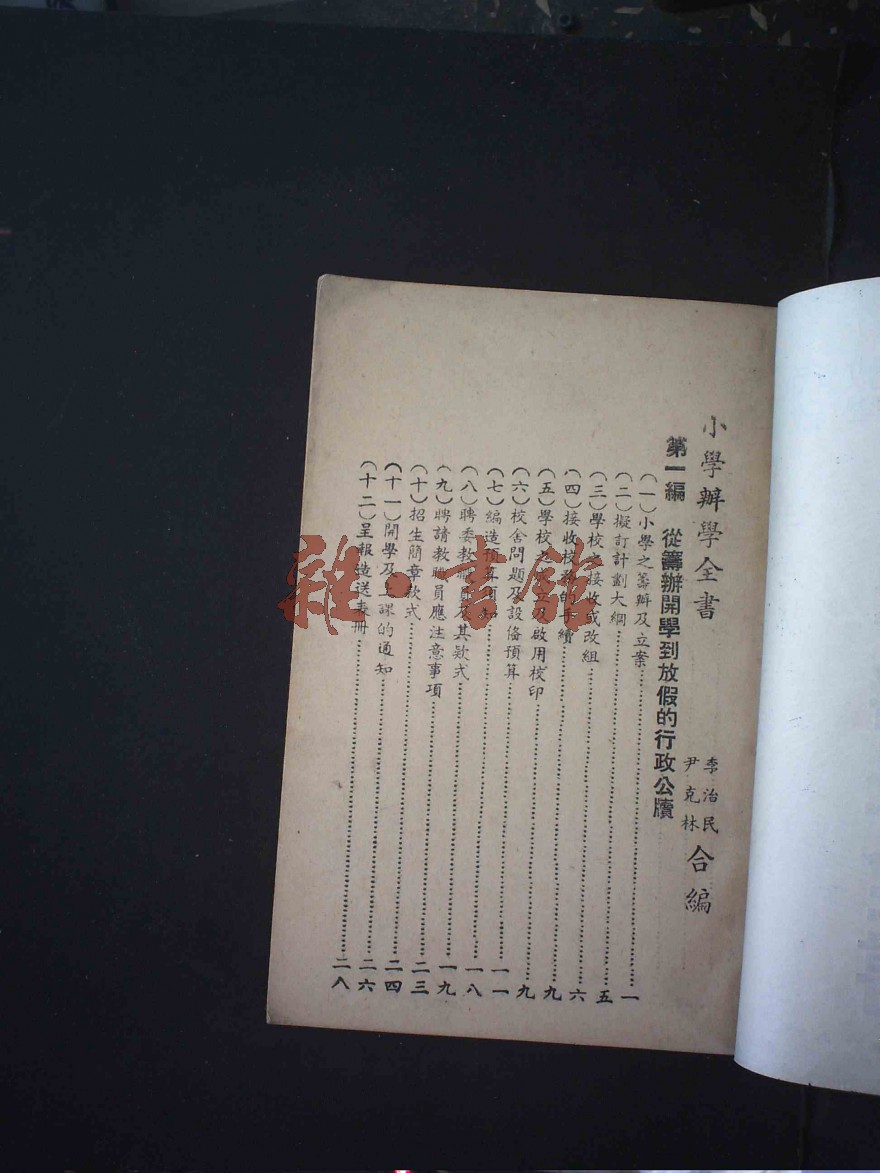 小學辦學全書
李治民
尹克林
合編
第一編 從籌辦開學到放假的行政公牘
(一)小學之籌辦及立案……一
(二)擬訂計劃大綱……五
(三)學校之接收或改組……六
(四)接收校務的手續……九
(五)學校之成立及啟用校印……九
(六)校舍問題及設俻預算……一一
(七)編造預算須知……一八
(八)聘委教職員及其欵式……一九
(九)聘請教職員應注意事項……二三
(十)招生簡章欵式……二四
(十一)開學及上課的通知……二六
(十二)呈報造送表冊……二八
雜·書館